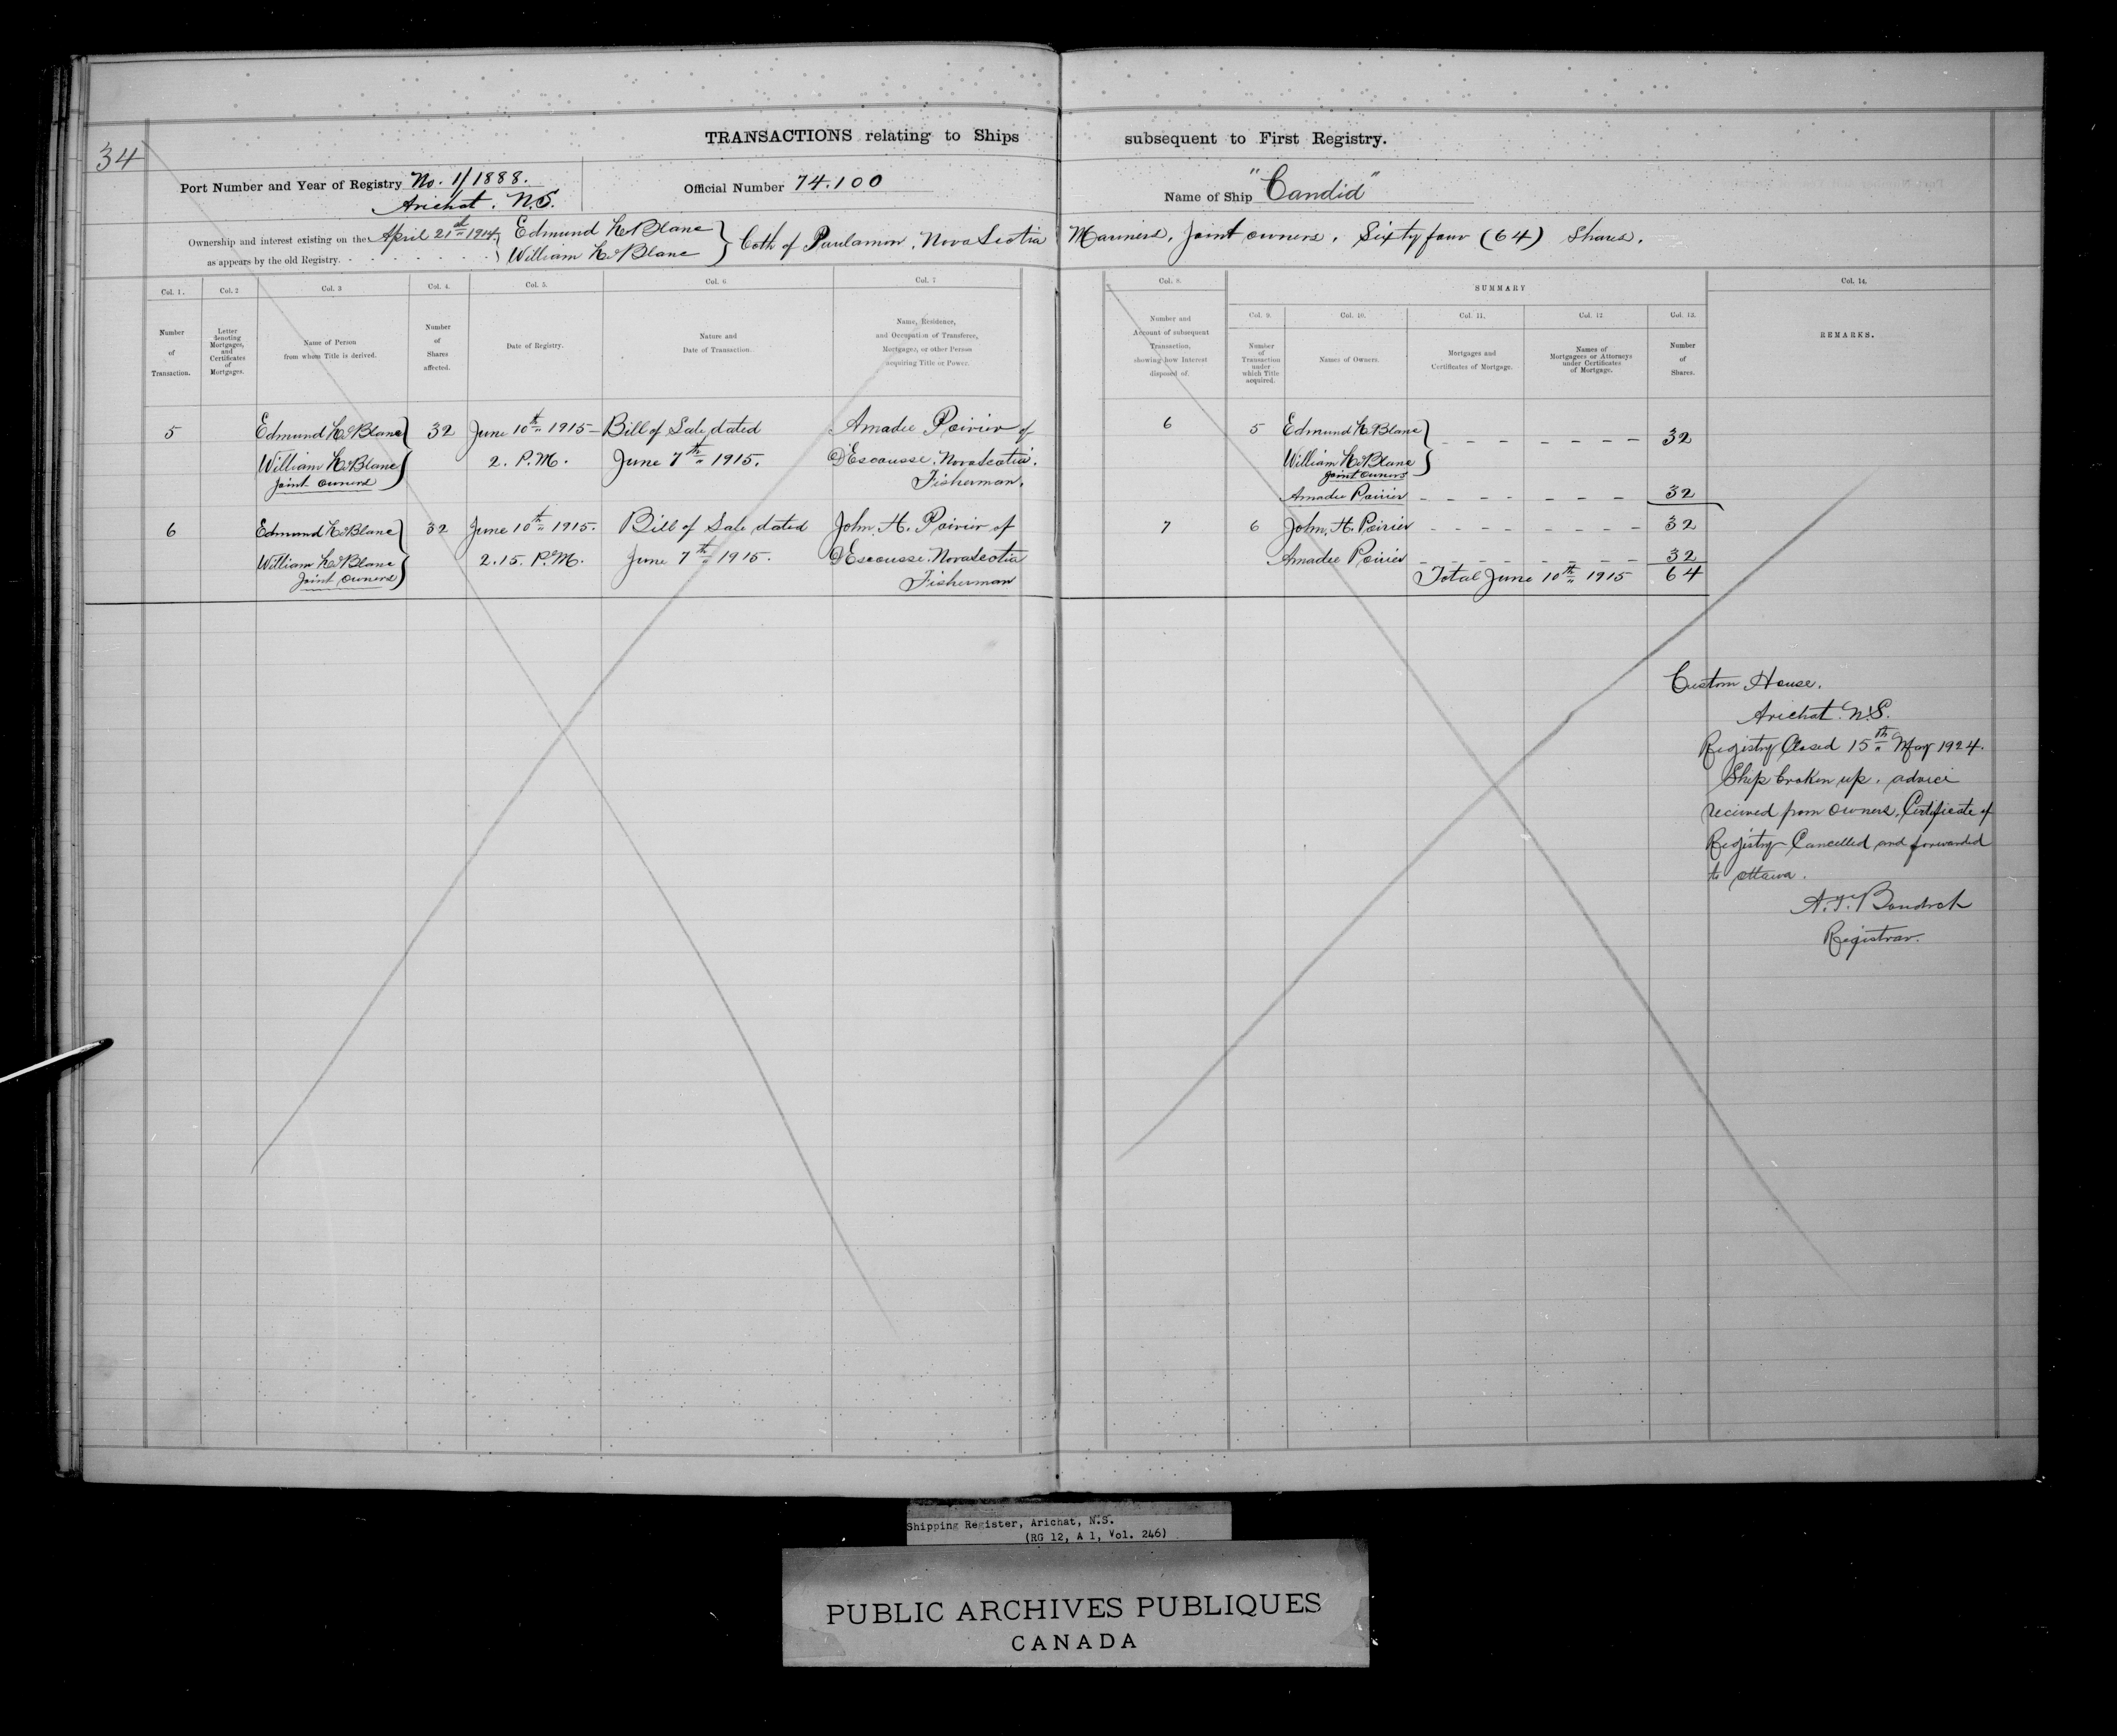 34
TRANSACTIONS relating to Ships subsequent to First Registry.
Port Number and Year of Registry No. 1/1888.
Arichat. N.S.
Official Number 74.100
Name of Ship "Candid"
Ownership and interest existing on the April 21st 1914
as appears by the old Registry.
Edmund LeBlanc
William LeBlanc
} both of Paulamon, Nova Scotia Mariners, Joint owners, Sixty four (64) Shares.
Col. 1.
Number of Transaction.
Col. 2
Letter denoting Mortgages, and Certificates of Mortgages.
Col. 3
Name of Person from whom Title is derived.
Col. 4.
Number of Shares affected.
Col. 5.
Date of Registry.
Col. 6
Nature and Date of Transaction.
Col. 7
Name, Residence, and Occupation of Transferee, Mortgagee, or other Person acquiring Title or Power.
Col. 8.
Number and Account of subsequent Transaction, showing how Interest disposed of.
SUMMARY
Col. 9.
Number of Transaction under which Title acquired.
Col. 10.
Names of Owners.
Col. 11.
Mortgages and Certificates of Mortgage.
Col. 12
Names of Mortgagees or Attorneys under Certificates of Mortgage.
Col. 13.
Number of Shares.
Col. 14.
REMARKS.
5 Edmund LeBlanc } 32 June 10th 1915 - Bill of Sale dated Amadee Poirier of
William LeBlanc 2. P.M. June 7th 1915. D'Escousse. Nova Scotia.
Joint owners Fisherman.
6 Edmund LeBlanc } 32 June 10th 1915. Bill of Sale dated John. H. Poirier of
William LeBlanc 2.15. P.M. June 7th 1915. D'Escousse. Nova Scotia
Joint owners Fisherman
6 5 Edmund LeBlanc } - - - - - - - - 32
William LeBlanc
Joint owners
Amadee Poirier - - - - - - - 32
7 6 John. H. Poirier - - - - - - - - 32
Amadee Poirier - - - - - - - - 32
Total June 10th 1915 64
Custom House.
Arichat. N.S.
Registry Closed 15th May 1924.
Ship broken up. advice
received from owners. Certificate of
Registry Cancelled and forwarded
to Ottawa.
A.T. Boudrot
Registrar.
Shipping Register, Arichat, N.S.
(RG 12, A 1, Vol. 246)
PUBLIC ARCHIVES PUBLIQUES
CANADA